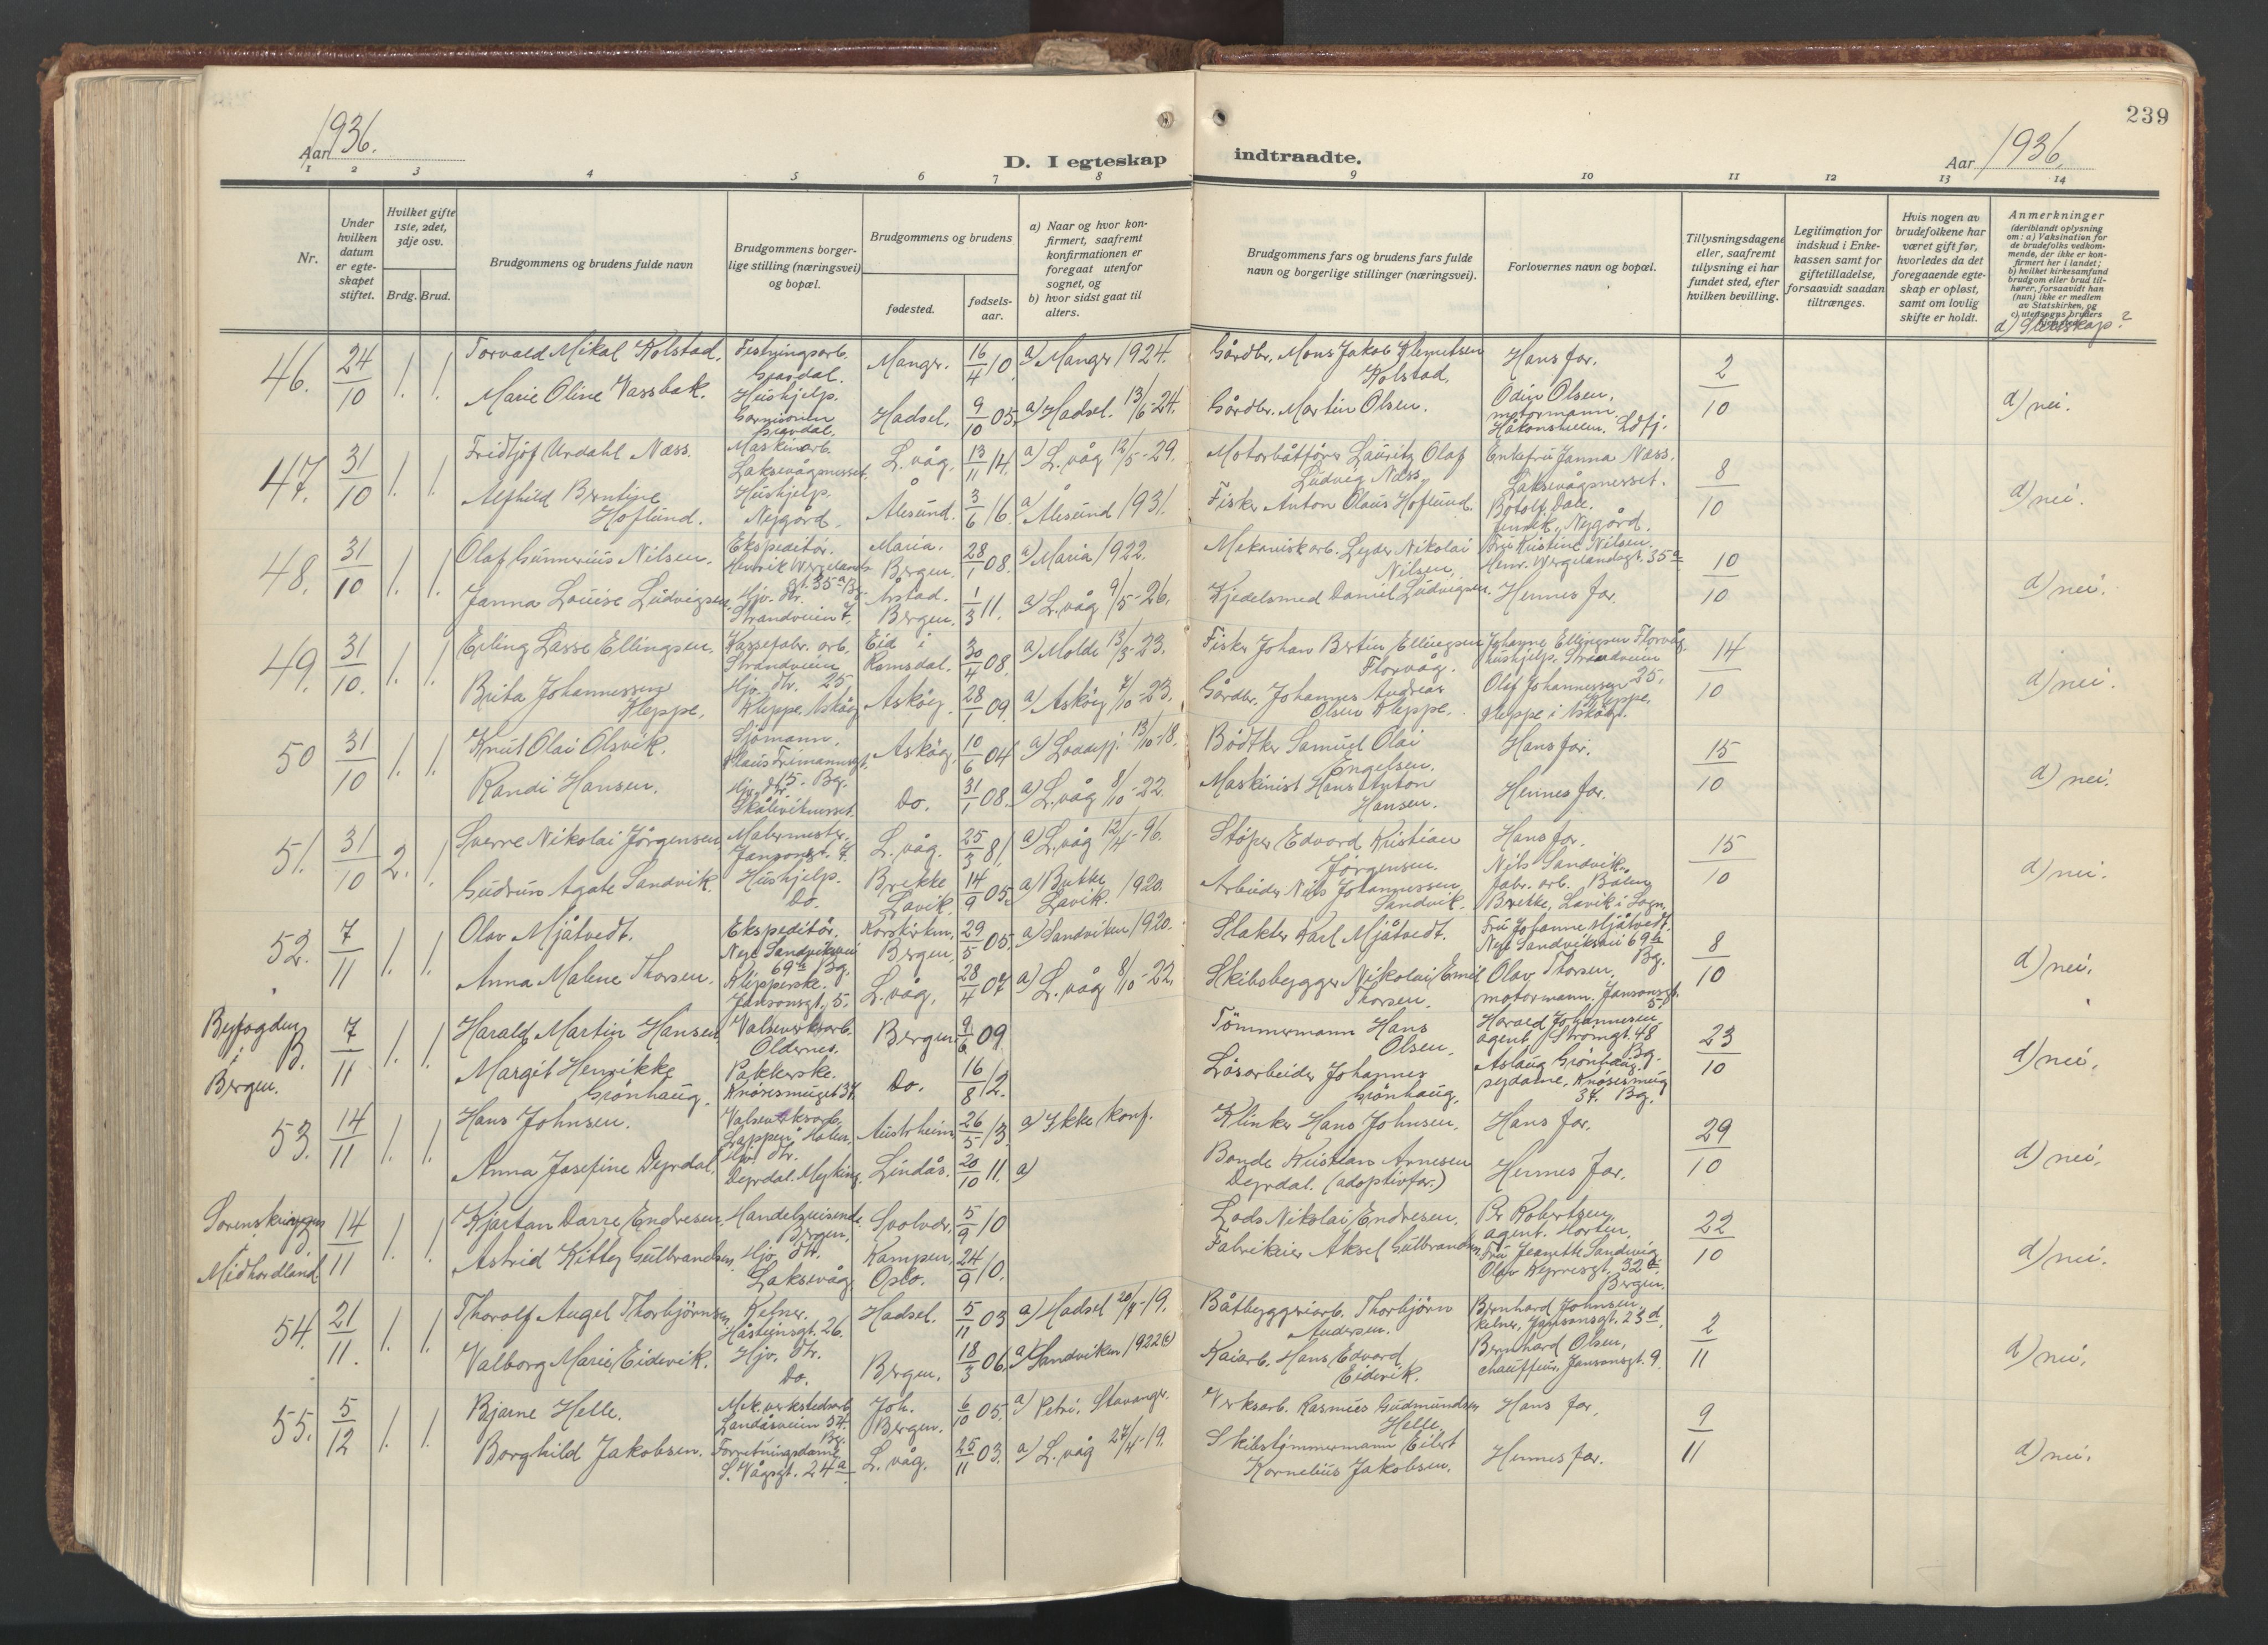 239
Aar 1936.
D. I egteskap
indtraadte.
Aar 1936.
1 2 3 4 5 6 7 8
9 10 11 12 13 14
Nr.
Under hvilken datum er egte-skapet stiftet.
Hvilket gifte 1ste, 2det, 3dje osv.
Brdg. Brud.
Brudgommens og brudens fulde navn
Brudgommens borger-lige stilling (næringsvei) og bopæl.
Brudgommens og brudens
fødested.
fødsels-aar.
a) Naar og hvor kon-firmert, saafremt konfirmationen er foregaat utenfor sognet, og
b) hvor sidst gaat til alters.
Brudgommens fars og brudens fars fulde navn og borgerlige stillinger (næringsvei).
Forlovernes navn og bopæl.
Tillysningsdagene eller, saafremt tillysning ei har fundet sted, efter hvilken bevilling.
Legitimation for indskud i Enke-kassen samt for giftetilladelse, forsaavidt saadan tiltrænges.
Hvis nogen av brudefolkene har været gift før, hvorledes da det foregaaende egte-skap er opløst, samt om lovlig skifte er holdt.
Anmerkninger (deriblandt oplysning om: a) Vaksination for de brudefolks vedkom-mende, der ikke er kon-firmert her i landet; b) hvilket kirkesamfund brudgom eller brud til-hører, forsaavidt han (hun) ikke er medlem av Statskirken, og c) utensogns bruders
d) Slektskap?
46. 24/10 1. 1. Torvald Mikal Kolstad. Festningsarb. Gravdal. Manger. 16/4 10. a) Manger 1924. Gårdbr. Mons Jakob Klemetsen Kolstad. Hans far. 2/10 d) nei.
Marie Oline Vassbak. Hushjelp. Gravdal. Hadsel. 9/10 05. a) Hadsel. 13/6-24. Gårdbr. Martin Olsen. Odin Olsen, motormann. Håkonshellen. Ldfj.
47. 31/10 1. 1. Fridtjof Urdahl Næss. Maskinarb. Laksevågnesset. L.våg. 13/11 14. a) L.våg 12/5-29. Motorbåtfører Lauritz Olaf Ludvig Næss. Enkefru Janna Næss. Laksevågnesset. 8/10 d) nei.
Alfhild Berntine Hoflund. Hushjelp. Nygård. Ålesund. 3/6 16. a) Ålesund 1931. Fisker Anton Olaus Hoflund. Botolf Dale. Nygård.
48. 31/10 1. 1. Olaf Gunnerius Nilsen. Ekspeditør. Henrik Wergelands gt. 35a Bg. Maria. Bergen. 28/1 08. a) Maria 1922. Mekaniskarb. Leder Nikolai Nilsen. Fru Kristine Nilsen. Henr. Wergelandsgt. 35a 10/10 d) nei.
Janna Louise Ludvigsen. Hjv. dtr. Strandveien 7. Årstad. Bergen. 1/3 11. a) L.våg 9/5-26. Kjedelsmed Daniel Ludvigsen. Hennes far.
49. 31/10. 1. 1. Erling Lasse Ellingsen. Kassefabr. arb. Strandveien 25 Eid i Romsdal. 30/4 08. a) Molde 13/5-23. Fisker Johan Bertin Ellingsen Florvåg. Johanne Ellingsen Florvåg. hushjelp. Strandveien 25. 14/10 d) nei.
Brita Johannessen Kleppe. Hjv. dtr. Kleppe. Askøy Askøy. 28/1 09. a) Askøy 7/10-23. Gårdbr. Johannes Andreas Olsen Kleppe. Olaf Johannessen Kleppe, Kleppe i Askøy.
50 31/10 1. 1. Knut Olai Olsvik. Sjømann. Klaus Frimannsgt. 15. Bg. Askøy. 10/6 04 a) Loddefj. 13/10-18. Bødker Samuel Olai Engelsen. Hans far. 15/10 d) nei.
Randi Hansen. Hjv. dtr. Skåleviknesset. Do. 31/1 08. a) L.våg 8/10-22. Maskinist Hans Anton Hansen. Hennes far.
51. 31/10 2. 1. Sverre Nikolai Jørgensen. Malermester. Jansonsgt. 7. L.våg. 25/3 81. a) L.våg 12/4-96. Støper Edvard Kristian Jørgensen. Hans far. 15/10 d) nei.
Gudrun Agate Sandvik. Hushjelp. Do. Brekke Lavik. 14/9 05. a) Brekke Lavik. 1920. Arbeider Nils Johannessen Sandvik. Nils Sandvik. fabr. arb. Brekke, Lavik i Sogn.
52. 7/11 1. 1. Olav Mjåtvedt. Ekspeditør. Nye Sandviksvei 69b Bg. Korskirken. Bergen. 29/5 05. a) Sandviken 1920. Slakter Karl Mjåtvedt. Fru Johanne Mjåtvedt. Nye Sandviksvei 69b Bg. 8/10 d) nei.
Anna Malene Thorsen. Klipperske. Jansonsgt. 5. L.våg. 28/4 07 a) L.våg 8/10-22. Skibsbygger Nikolai Emil Thorsen. Olav Thorsen. motormann. Jansonsgt. 5.
Byfogden i B. Bergen. 7/11 1. 1. Harald Martin Hansen Valseverksarb. Oldernes. Bergen. 9/6 09. Tømmermann Hans Olsen. Harald Johannesen. agent. Strømgt. 48 Bg. 23/10 d) nei.
Margit Henrikke Grönhaug. Pakkerske. Knøsesmuget 37. Do. 16/8 12. Løsarbeider Johannes Grönhaug. Aslaug Grönhaug. sydame, Knøsesmug 37. Bg.
53. 14/11 1. 1. Hans Johnsen. Valseverksarb. Lappen, Holen. Austrheim 26/5 13. a) Ikke konf. Klinker Hans Johnsen. Hans far. 29/10 d) nei.
Anna Josefine Dyrdal. Hjv. dtr. Dyrdal. Myking. Lindås. 20/10 11. a) Bonde Kristian Arnesen Dyrdal. (adoptivfar.) Hennes far.
Sorenskriveren B. Midhordland 14/11 1. 1. Kjartan Darre Endresen. Handelsreisende. Bergen. Svolvær. 5/9 10 Lods Nikolai Endresen. Per Robertsen. agent. Horten. 22/10 d) nei.
Astrid Kitty Gulbrandsen. Hjv. dtr. Laksevåg Kampen. Oslo. 24/9 10. Fabrikeier Aksel Gulbrandsen Fru Jeanette Sandvig. Olav Kyrresgt. 32 Bergen.
54. 21/11. 1. 1. Thorolf Angel Thorbjørnsen. Kelner. Håsteinsgt. 26. Hadsel. 5/11 03 a) Hadsel 20/4-19. Båtbyggeriarb. Thorbjørn Andersen. Bernhard Johnsen. kelner, Jansonsgt. 23d. 2/11 d) nei.
Valborg Marie Eidevik. Hjv. dtr. Do. Bergen. 18/3 06. a) Sandviken 1922 Kaiarb. Hans Edvard Eidevik. Bernhard Olsen, chauffeur, Jansonsgt. 9.
55. 5/12 1. 1. Bjarne Helle. Mek. verkstedsarb. Landåsveien 34. Bg. Joh. Bergen. 6/10 05. a) Petri. Stavanger. Verksarb. Rasmus Gudmundsen Helle. Hans far. 9/11 d) nei.
Borghild Jakobsen. Forretningsdame S. Vågsgt. 24a L.våg. 25/11 03. a) L.våg 27/4-19. Skibstømmermann Eilert Kornelius Jakobsen. Hennes far.